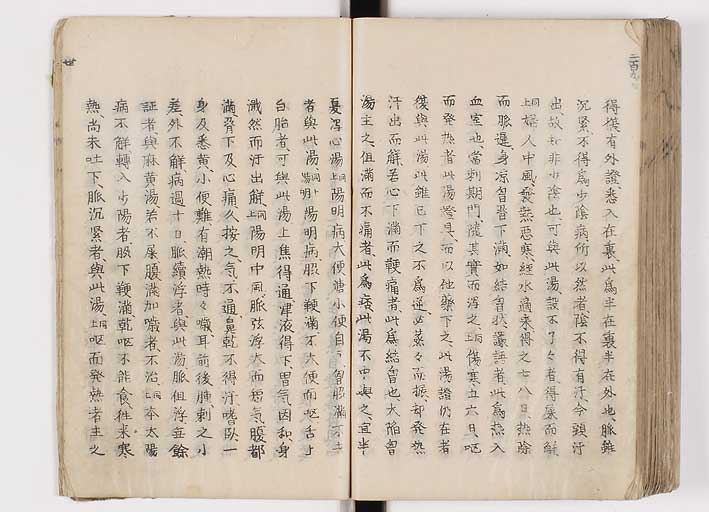 得僕有外證悉入在裏此爲半在裏半在外也脈雖
沉緊不得爲少陰病所以然者陰不得有汗今頭汗
出故知非少陰也可與此湯設不了々者得屎而解
上同婦人中風發熱惡寒經水適來得之七八日熱除
而脈遲身凉胷脇下滿如結胷狀讝語者此爲熱入
血室也當刺期門隨其實而瀉之上同傷寒五六日嘔
而發熱者此湯證具而以他藥下之此湯證仍在者
復與此湯此雖已下之不爲逆必蒸々而振却發熱
汗出而解若心下滿而鞕痛者此爲結胷也大陥胷
湯主之但滿而不痛者此爲痞此湯不中與之宜半
夏瀉心湯上同陽明病大便溏小便自胷脇滿不
者與此湯陽明陽明病脇下鞕滿不大便而嘔舌上
白胎者可與此湯上焦得通津液得下胃气因和身
濈然而汗出解上同陽明中風脈弦浮大而短气腹都
滿脅下及心痛久按之气不通鼻乾不得汗嗜臥一
身及悉黄小便難有潮熱時々噦耳前後腫刺之小
差外不解病過十日脈續浮者與此湯脈但浮無餘
証者與麻黄湯若不尿腹滿加噦者不治上同本太陽
病不解轉入少陽者脇下鞕滿乾嘔不能食往来寒
熱尚未吐下脈沉緊者與此湯上同嘔而発熱者主之